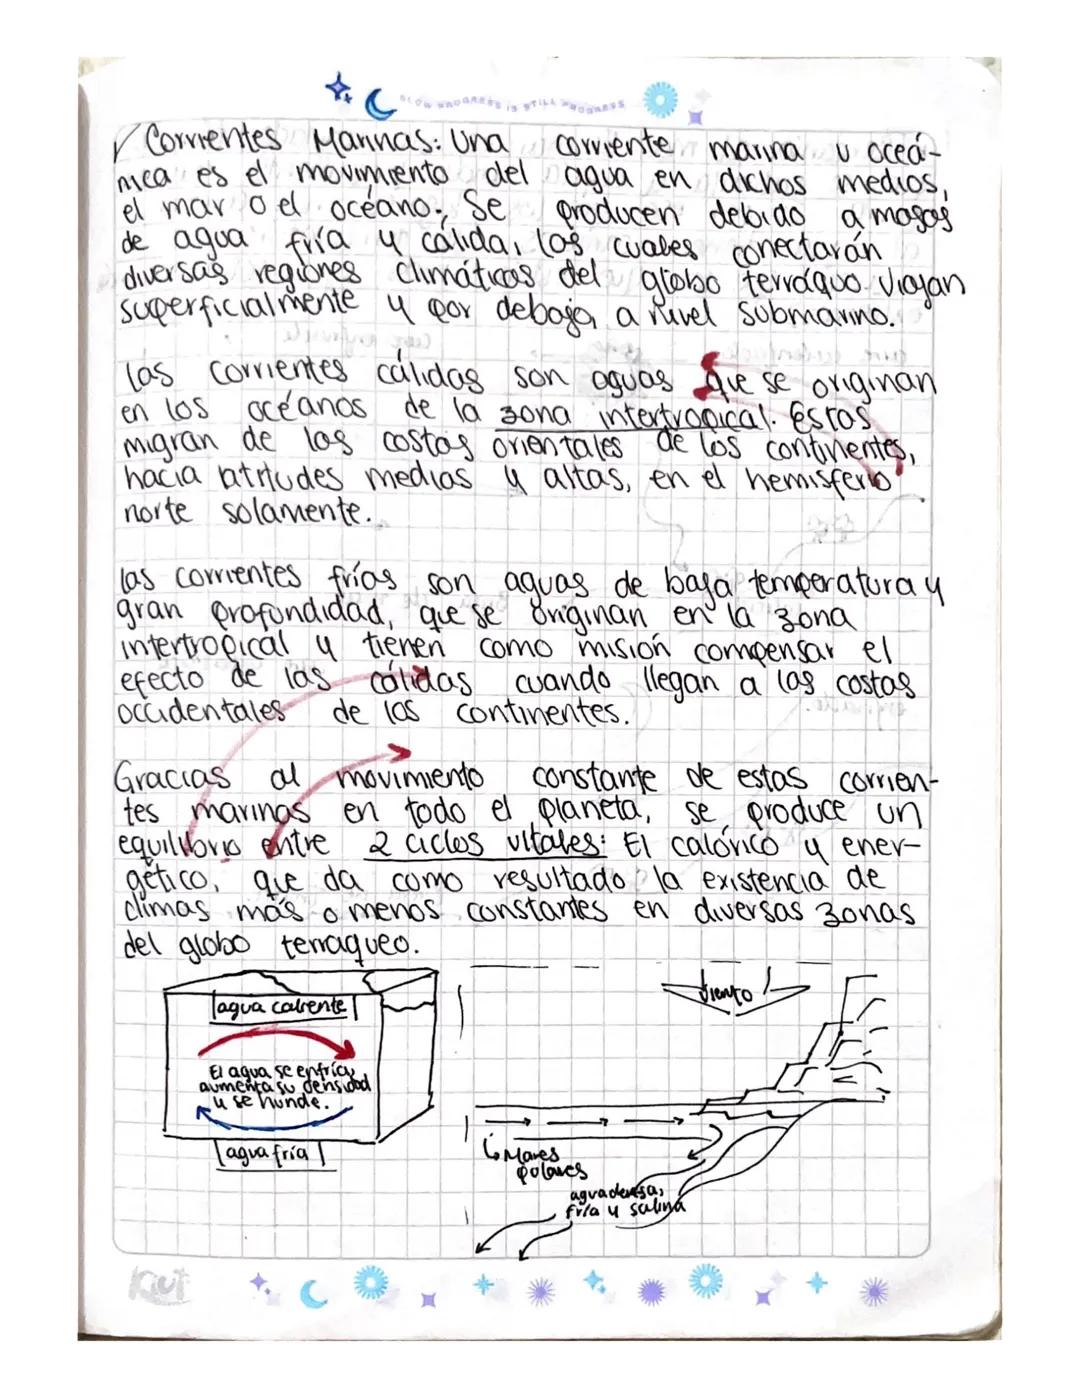 SLOW PROGRESS IS STILL PROGRESS
Corrientes Marinas: Una corriente marina u oceá-
nica es el movimiento del agua en dichos medios,
el mar o el océano. Se producen debido a masas
de agua fría y cálida, las cuales conectarán
diversas regiones climáticas del globo terráquo. Viajan
superficialmente y por debajo, a nivel submarino.
las corrientes cálidas son aguas que se originan
en los océanos de la zona intertropical. Estas
migran de las costas orientales de los continentes,
hacia latitudes medias y altas, en el hemisferio
norte solamente.
las corrientes frías son aguas de baja temperatura y
gran profundidad, que se originan en la zona
intertropical y tienen como misión compensar el
efecto de las cálidas cuando llegan a las costas
occidentales de los continentes.
Gracias al movimiento constante de estas corrien-
tes marinas en todo el planeta, se produce un
equilibrio entre 2 ciclos vitales: El calórico y ener-
gético, que da como resultado la existencia de
climas más o menos constantes en diversas zonas
del globo terraqueo.
agua caliente
El agua se enfría,
aumenta su densidad
y se hunde.
agua fría
Viento
Mares
polares
agua densa,
fría y salina
Kiut